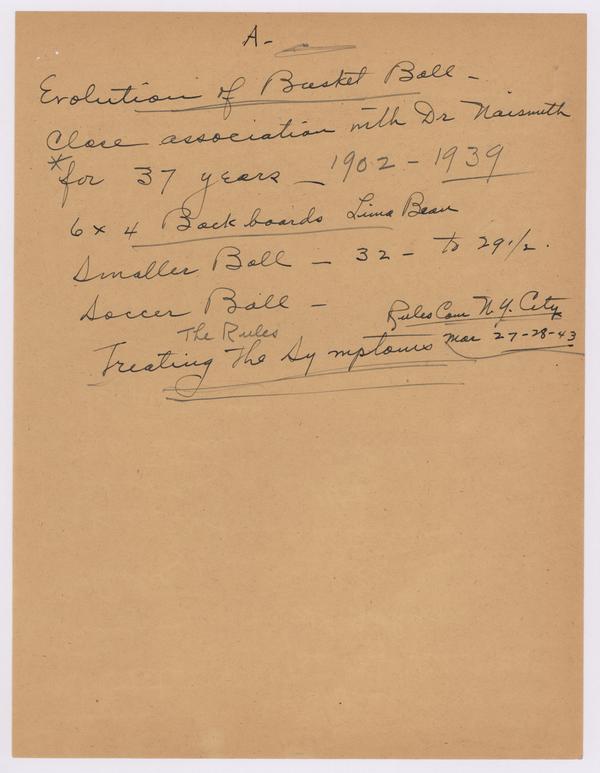 A-
Evolution of Basket Ball -
Close association with Dr Naismith
* for 37 years - 1902 - 1939
6 x 4 Back boards Lima Bean
Smaller Ball - 32 - to 29 1/2.
Soccer Ball -
Rules Com N.Y. City
The Rules
Mar 27-28-43
Treating The Symptoms